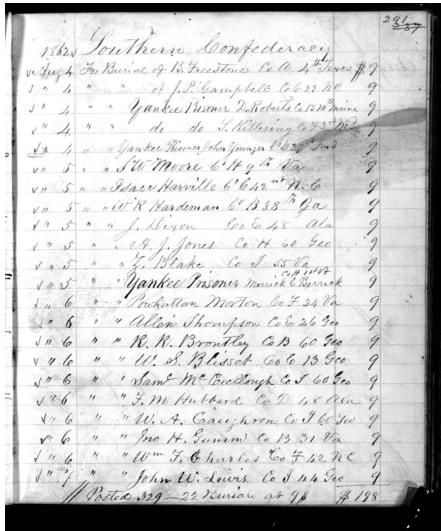 241
237
1862 Southern Confederacy
Aug 4 For Burial of B. Freestone Co A 4th Texas $ 9
" 4 " " of J. P. Campbell Co E 22 NC 9
" 4 " " Yankee Prisoner D. Roberts Co 10th Maine 9
" 4 " do do S. Kittering Co 9
" 4 " " Yankee Prisoner John Younger 9
" 5 " " S W Moore Co H 9th Va 9
" 5 " " Isaac Harville Co E 42nd N. C 9
" 5 " " W R Hardeman Co B 38th Ga 9
" 5 " " J. Dixon Co E 48 Ala 9
" 5 " " A. J. Jones Co H 60 Geo 9
" 5 " " Z. Blake Co I 55 Va 9
" 5 " " Yankee Prisoner Merrick C. Berrick Co H 9
" 6 " " Powhattan Morton Co F 24 Va 9
" 6 " " Allen Thompson Co E 26 Geo 9
" 6 " " R. R. Brantley Co B 60 Geo 9
" 6 " " W. S. Blisset Co E 13 Geo 9
" 6 " " Saml McCullough Co I 60 Geo 9
" 6 " " F. M Hubbard Co D 48 Ala 9
" 6 " " W. A. Caughren Co I 60 Geo 9
" 6 " " Jno H. Gunnm Co B 31 Va 9
" 6 " " Wm F. Charles Co F 42 NC 9
" 7 " " John W. Lewis Co I 44 Geo 9
Posted 329 - 22 Burials at 9$ $ 198